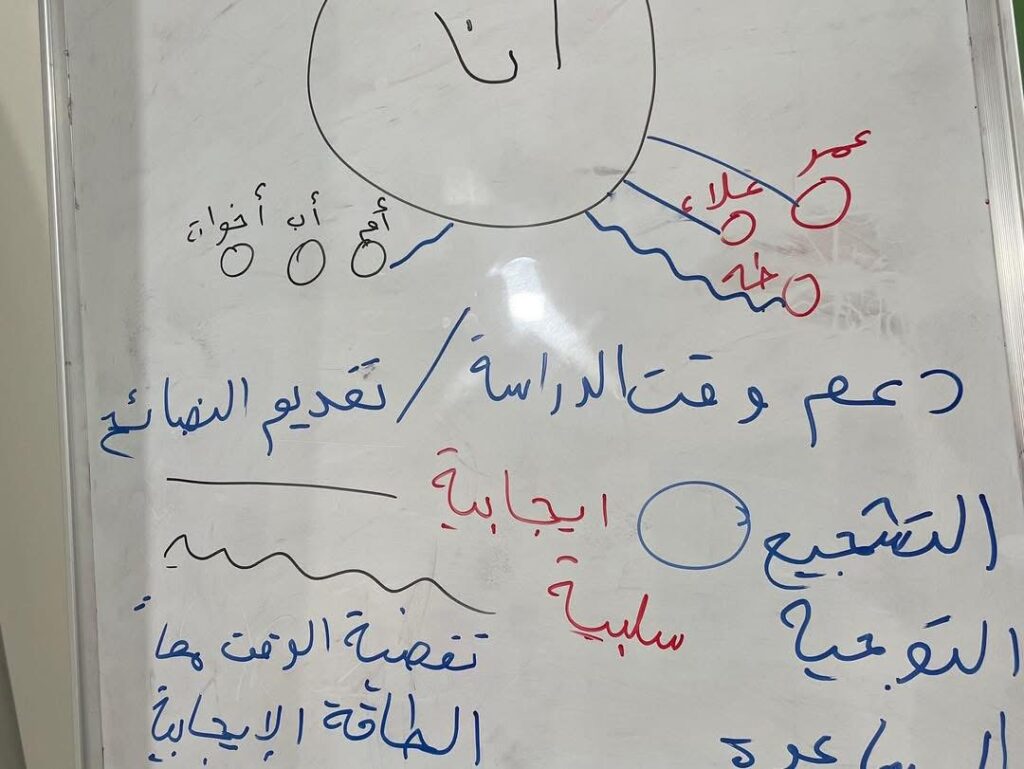 أنا
عمر
علاء
طه
أم
أب
أخوات
دعم وقت الدراسة / تقديم النصائح
ايجابية
التشجيع
سلبية
التوجية
تفضية الوقت معاً
الطاقة الإيجابية
المساعدة